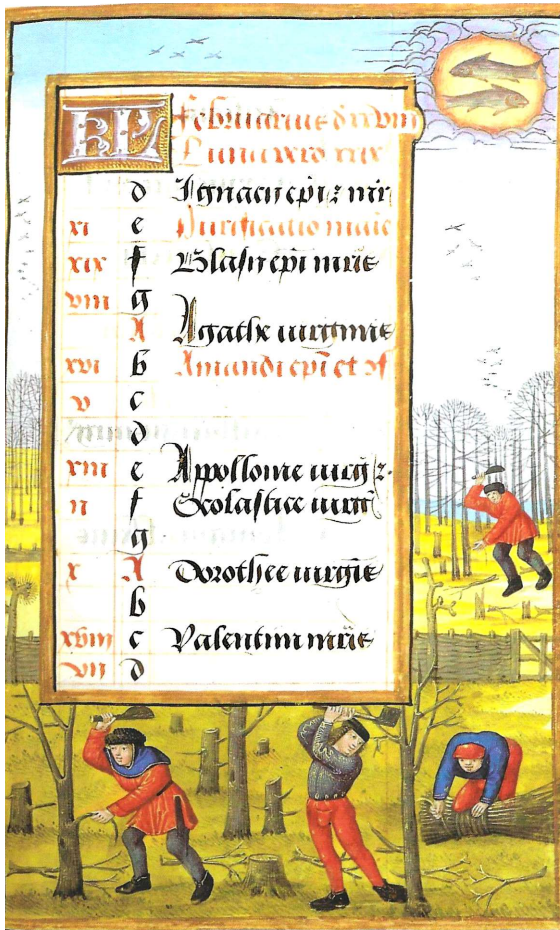 KL Februarius d xxviii
Luna vero xxix
d Ignacii epi z mr
xi e Purificatio marie
xix f Blasii epi mris
viii g
A Agathe virginis
xvi b Amandi epi et
v c
d
xiii e Appollonie virg z.
ii f Scolastice virg
g
x A Dorothee virgis
b
xviii c Valentini mris
vii d